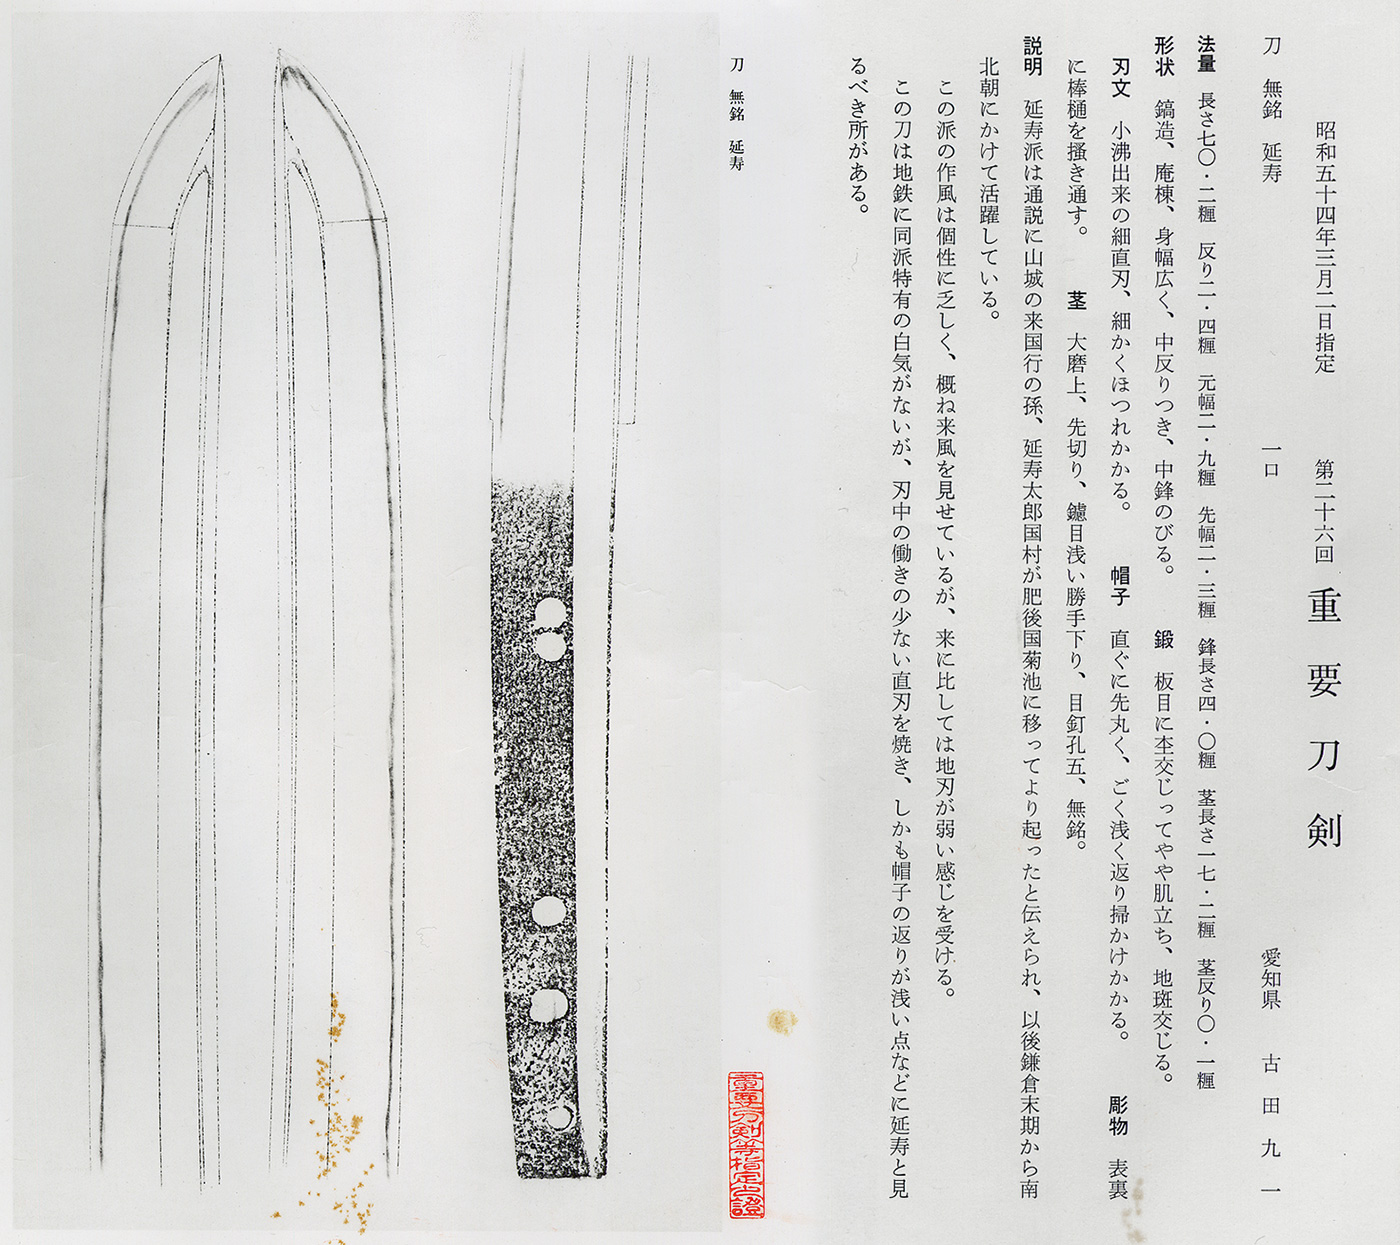 昭和五十四年三月二日指定　第二十六回　重要刀剣
刀　無銘　延寿　一口　愛知県　古田九一
法量　長さ七〇・二糎　反り二・四糎　元幅二・九糎　先幅二・三糎　鋒長さ四・〇糎　茎長さ一七・二糎　茎反り〇・一糎
形状　鎬造、庵棟、身幅広く、中反りつき、中鋒のびる。　鍛　板目に杢交じってやや肌立ち、地斑交じる。
刃文　小沸出来の細直刃、細かくほつれかかる。　帽子　直ぐに先丸く、ごく浅く返り掃かけかかる。　彫物　表裏
に棒樋を掻き通す。　茎　大磨上、先切り、鑢目浅い勝手下り、目釘孔五、無銘。
説明　延寿派は通説に山城の来国行の孫、延寿太郎国村が肥後国菊池に移ってより起ったと伝えられ、以後鎌倉末期から南
北朝にかけて活躍している。
この派の作風は個性に乏しく、概ね来風を見せているが、来に比しては地刃が弱い感じを受ける。
この刀は地鉄に同派特有の白気がないが、刃中の働きの少ない直刃を焼き、しかも帽子の返りが浅い点などに延寿と見
るべき所がある。
刀　無銘　延寿
重要刀剣等指定之證